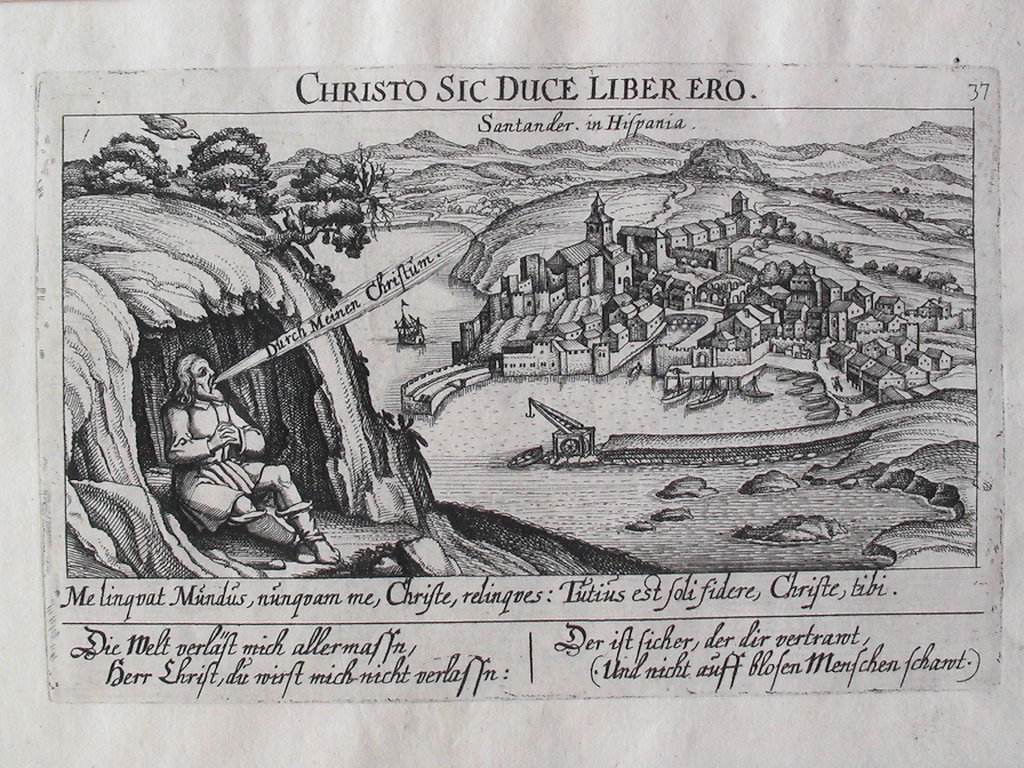 CHRISTO SIC DUCE LIBER ERO.
37
Santander. in Hiſpania.
Durch Meinen Chriſtum.
Me linqvat Mundus, nunqvam me, Chriſte, relinqves: Tutius est ſoli fidere, Chriſte, tibi.
Die Welt verläſt mich allermaſſn,
Herr Chriſt, du wirſt mich nicht verlaſſn:
Der iſt ſicher, der dir vertrawt,
(Und nicht auff bloſen Menſchen ſchawt.)